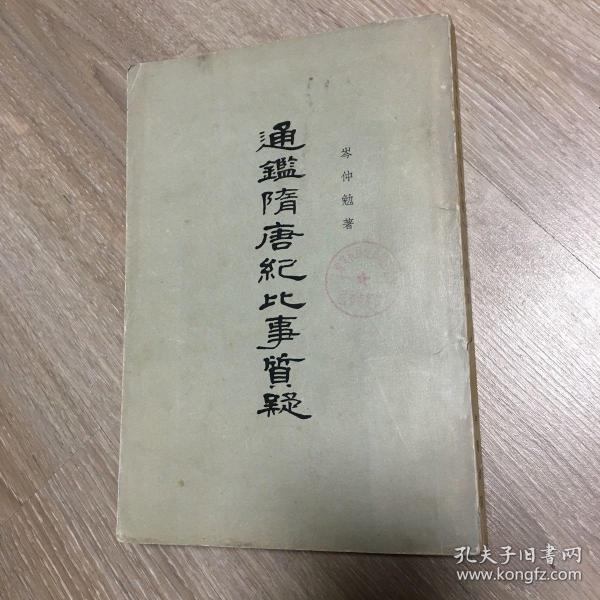 岑仲勉著
通鑑隋唐紀比事質疑
孔夫子旧书网
www.kongfz.com